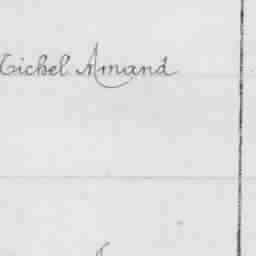 Michel Amand